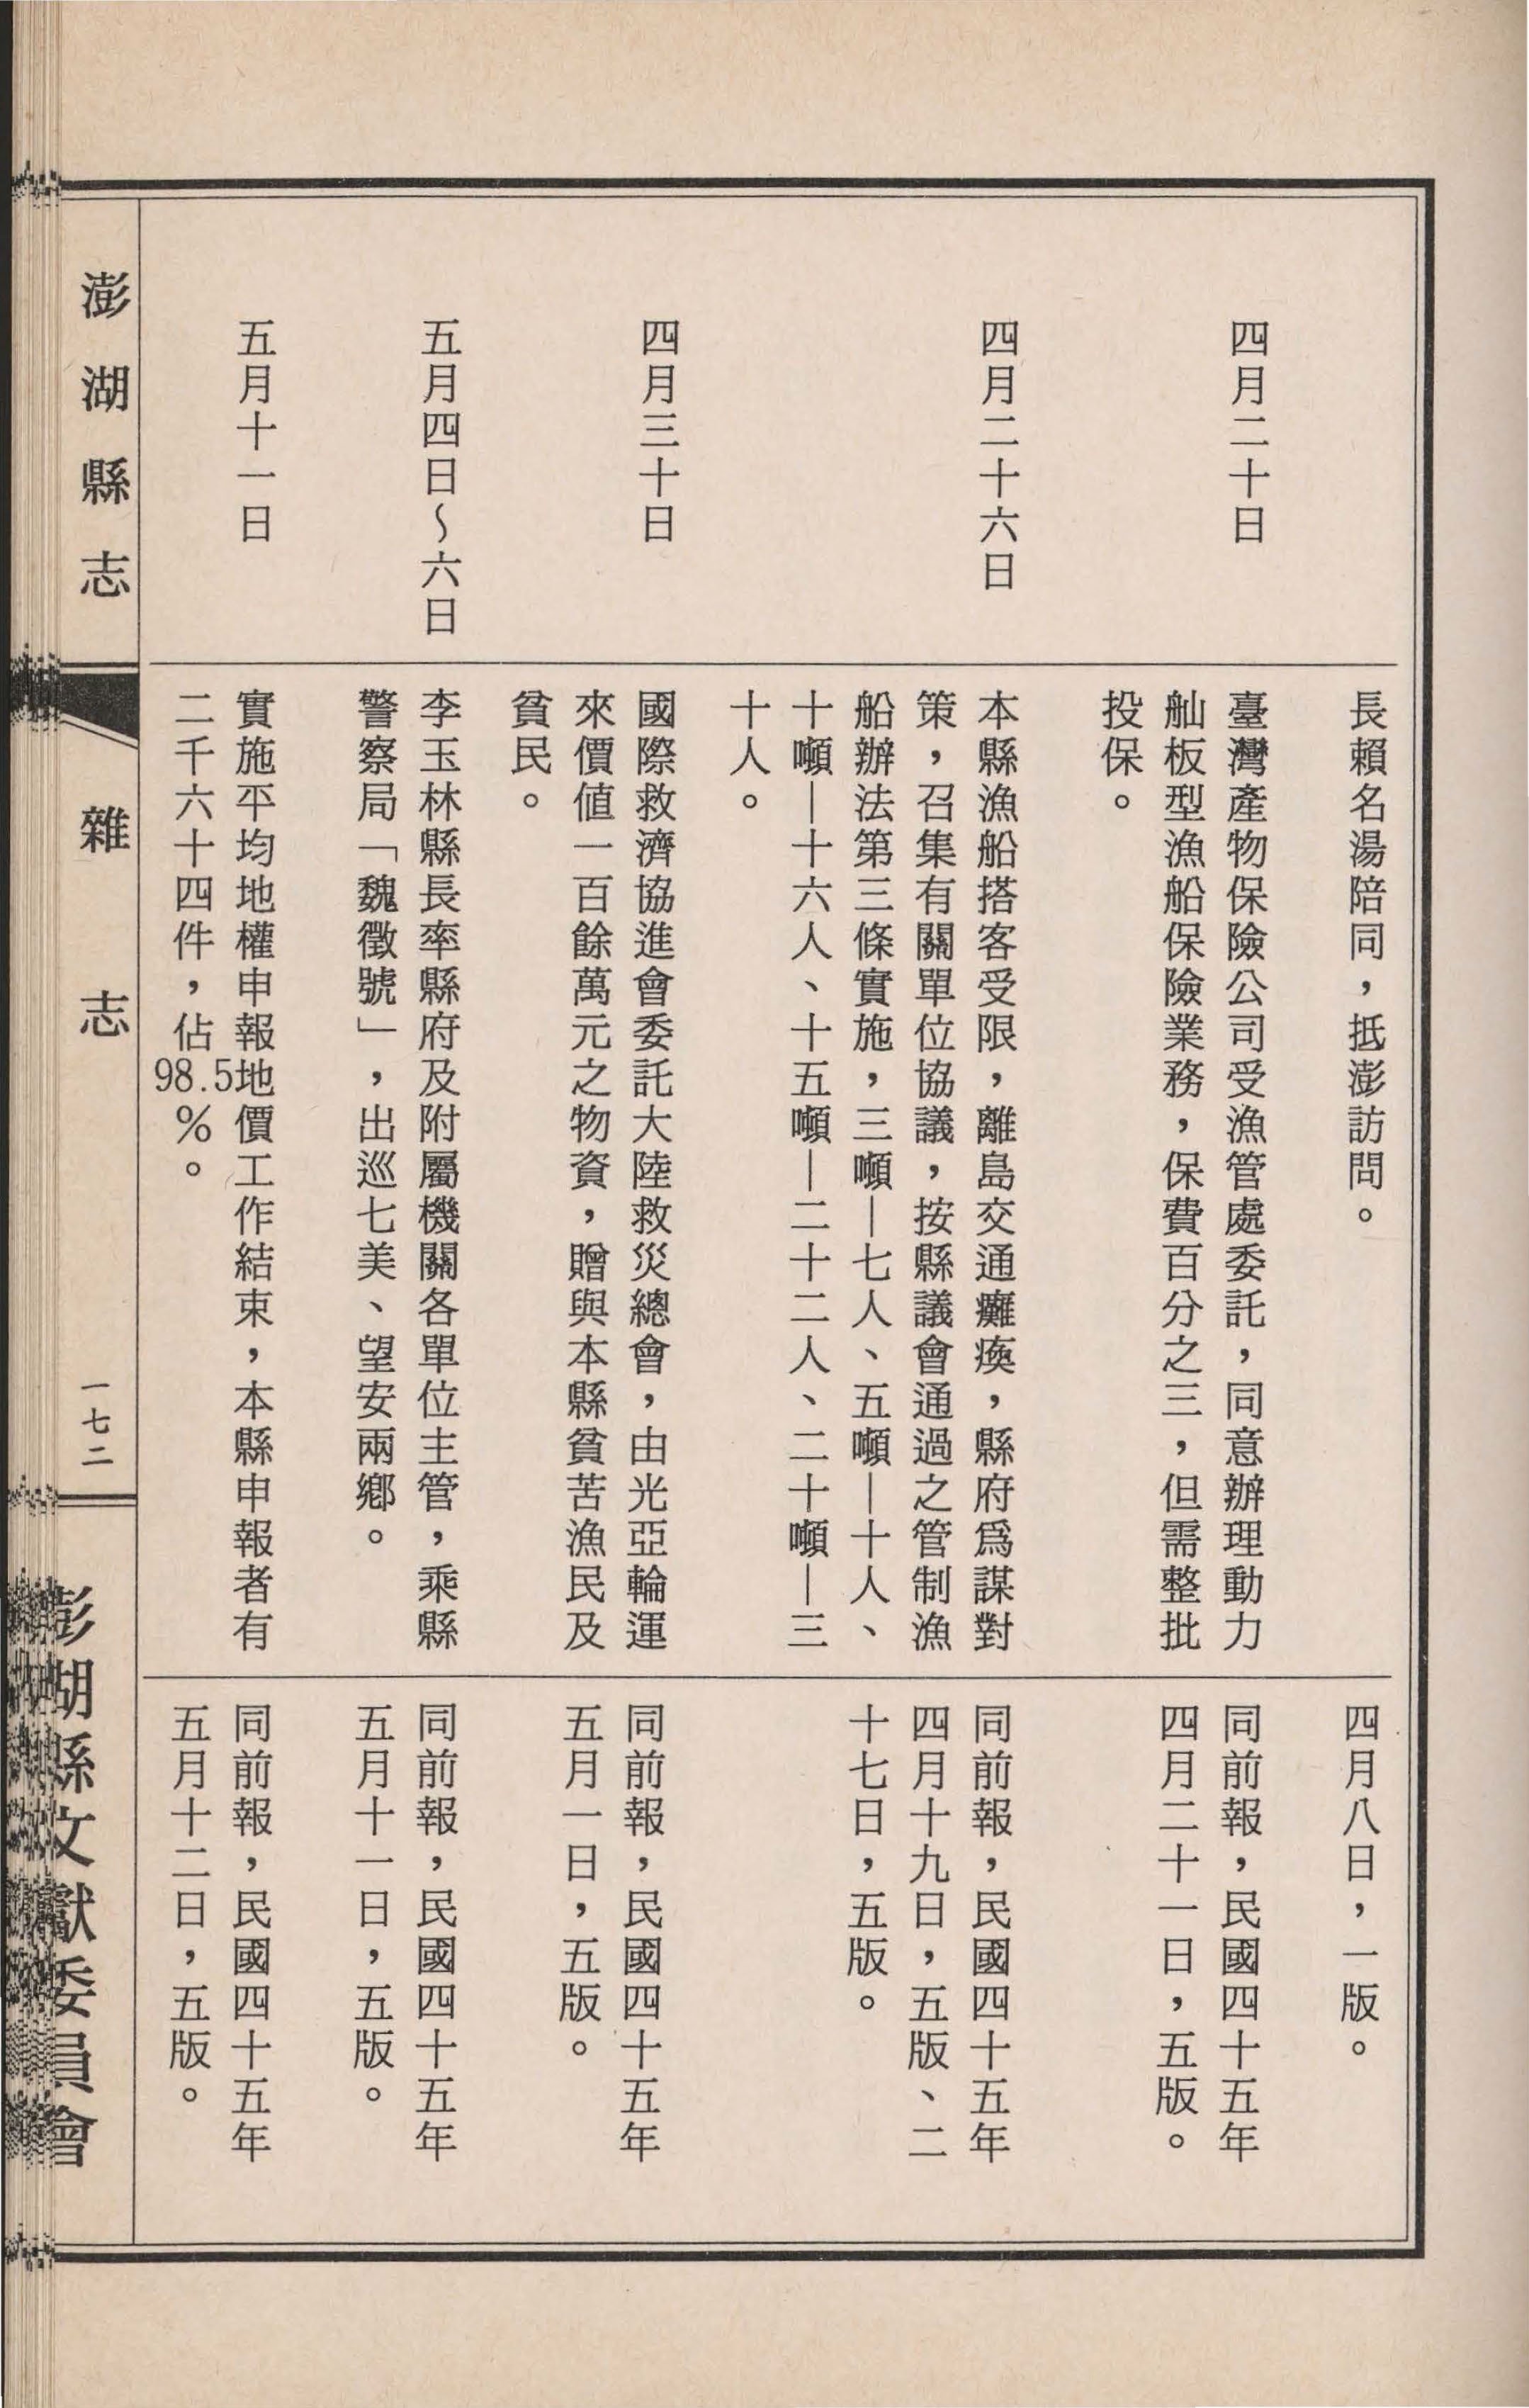 長賴名湯陪同，抵澎訪問。
四月八日，一版。
四月二十日
臺灣產物保險公司受漁管處委託，同意辦理動力
舢板型漁船保險業務，保費百分之三，但需整批
投保。
同前報，民國四十五年
四月二十一日，五版。
四月二十六日
本縣漁船搭客受限，離島交通癱瘓，縣府爲謀對
策，召集有關單位協議，按縣議會通過之管制漁
船辦法第三條實施，三噸—七人、五噸—十人、
十噸—十六人、十五噸—二十二人、二十噸—三
十人。
同前報，民國四十五年
四月十九日，五版、二
十七日，五版。
四月三十日
國際救濟協進會委託大陸救災總會，由光亞輪運
來價值一百餘萬元之物資，贈與本縣貧苦漁民及
貧民。
同前報，民國四十五年
五月一日，五版。
五月四日～六日
李玉林縣長率縣府及附屬機關各單位主管，乘縣
警察局「魏徵號」，出巡七美、望安兩鄉。
同前報，民國四十五年
五月十一日，五版。
五月十一日
實施平均地權申報地價工作結束，本縣申報者有
二千六十四件，佔98.5％。
同前報，民國四十五年
五月十二日，五版。
澎湖縣志
雜志
一七二
澎湖縣文獻委員會